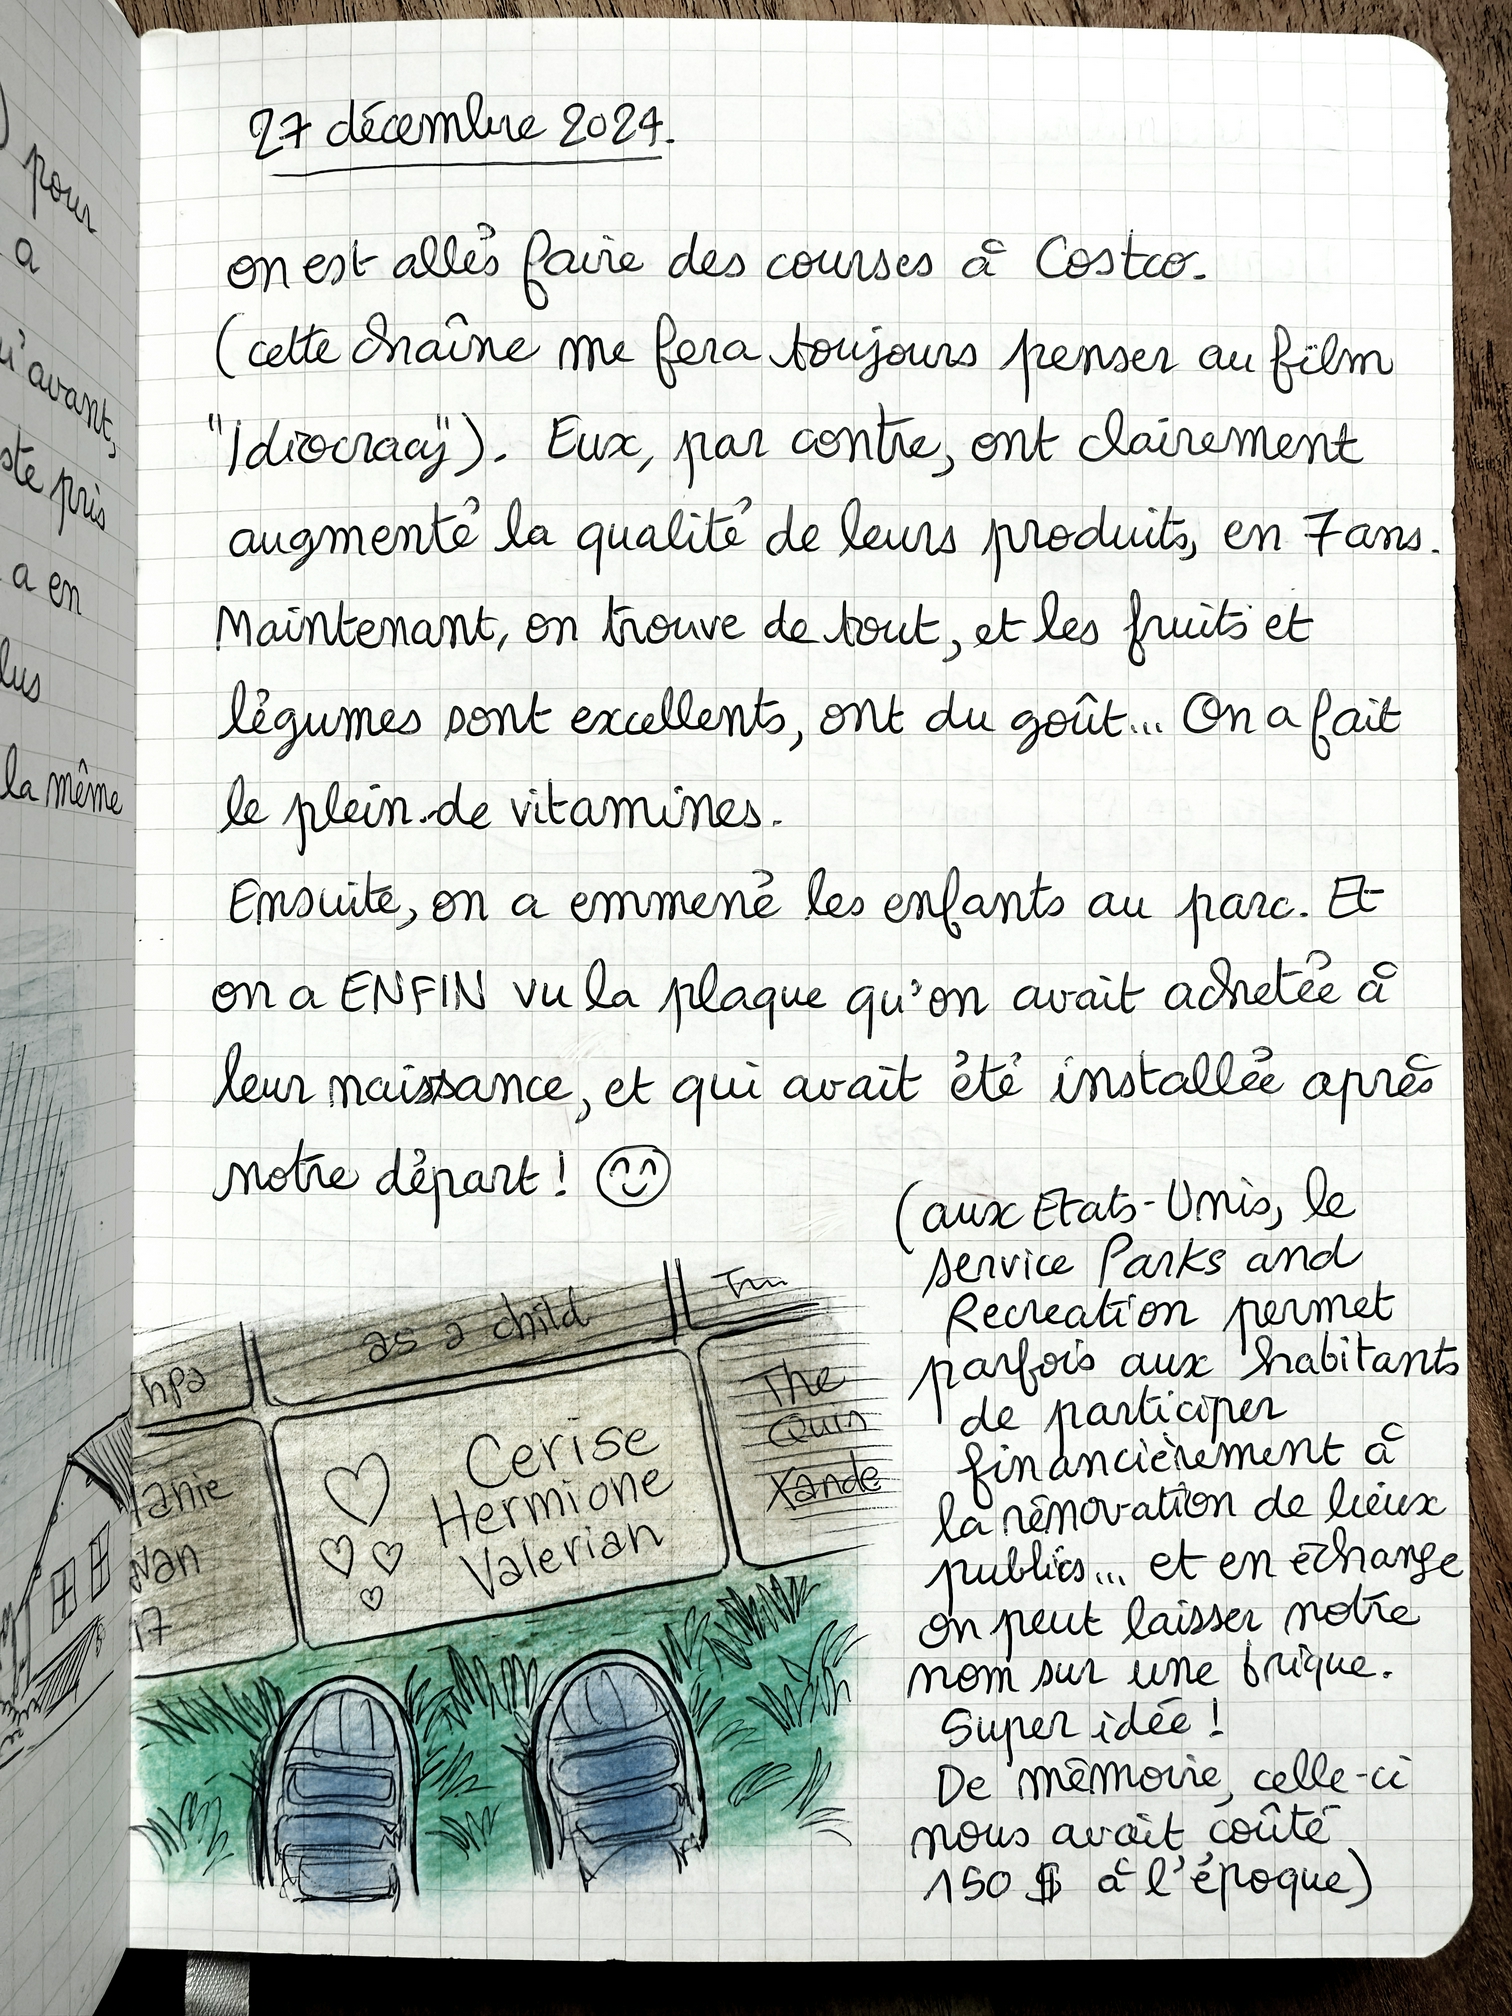 pour
a
u'avant,
ste pris
a en
lus
la même
27 décembre 2024.
on est allés faire des courses à Costco.
(cette chaîne me fera toujours penser au film
"Idiocracy"). Eux, par contre, ont clairement
augmenté la qualité de leurs produits, en 7 ans.
Maintenant, on trouve de tout, et les fruits et
légumes sont excellents, ont du goût... On a fait
le plein de vitamines.
Ensuite, on a emmené les enfants au parc. Et
on a ENFIN vu la plaque qu'on avait achetée à
leur naissance, et qui avait été installée après
notre départ !
(aux Etats-Unis, le
service Parks and
Recreation permet
parfois aux habitants
de participer
financièrement à
la rénovation de lieux
publics... et en échange
on peut laisser notre
nom sur une brique.
Super idée !
De mémoire, celle-ci
nous avait coûté
150 $ à l'époque)
hpa
as a child
anie
wan
17
Cerise
Hermione
Valerian
The
Quin
Xande